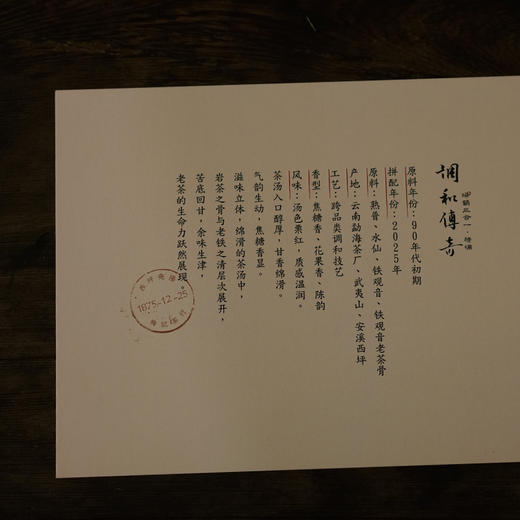 调和傳奇
原料年份：90年代初期
拼配年份：2025年
原料：熟普、水仙、铁观音、铁观音老茶骨
产地：云南勐海茶厂、武夷山、安溪西坪
工艺：跨品类调和技艺
香型：焦糖香、花果香、陈韵
风味：汤色栗红，质感温润。
茶汤入口醇厚，甘香绵滑。
气韵生动，焦糖香显。
滋味立体，绵滑的茶汤中，
岩茶之骨与老铁之清层次展开，
苦底回甘，余味生津，
老茶的生命力跃然展现。
1875-12-25